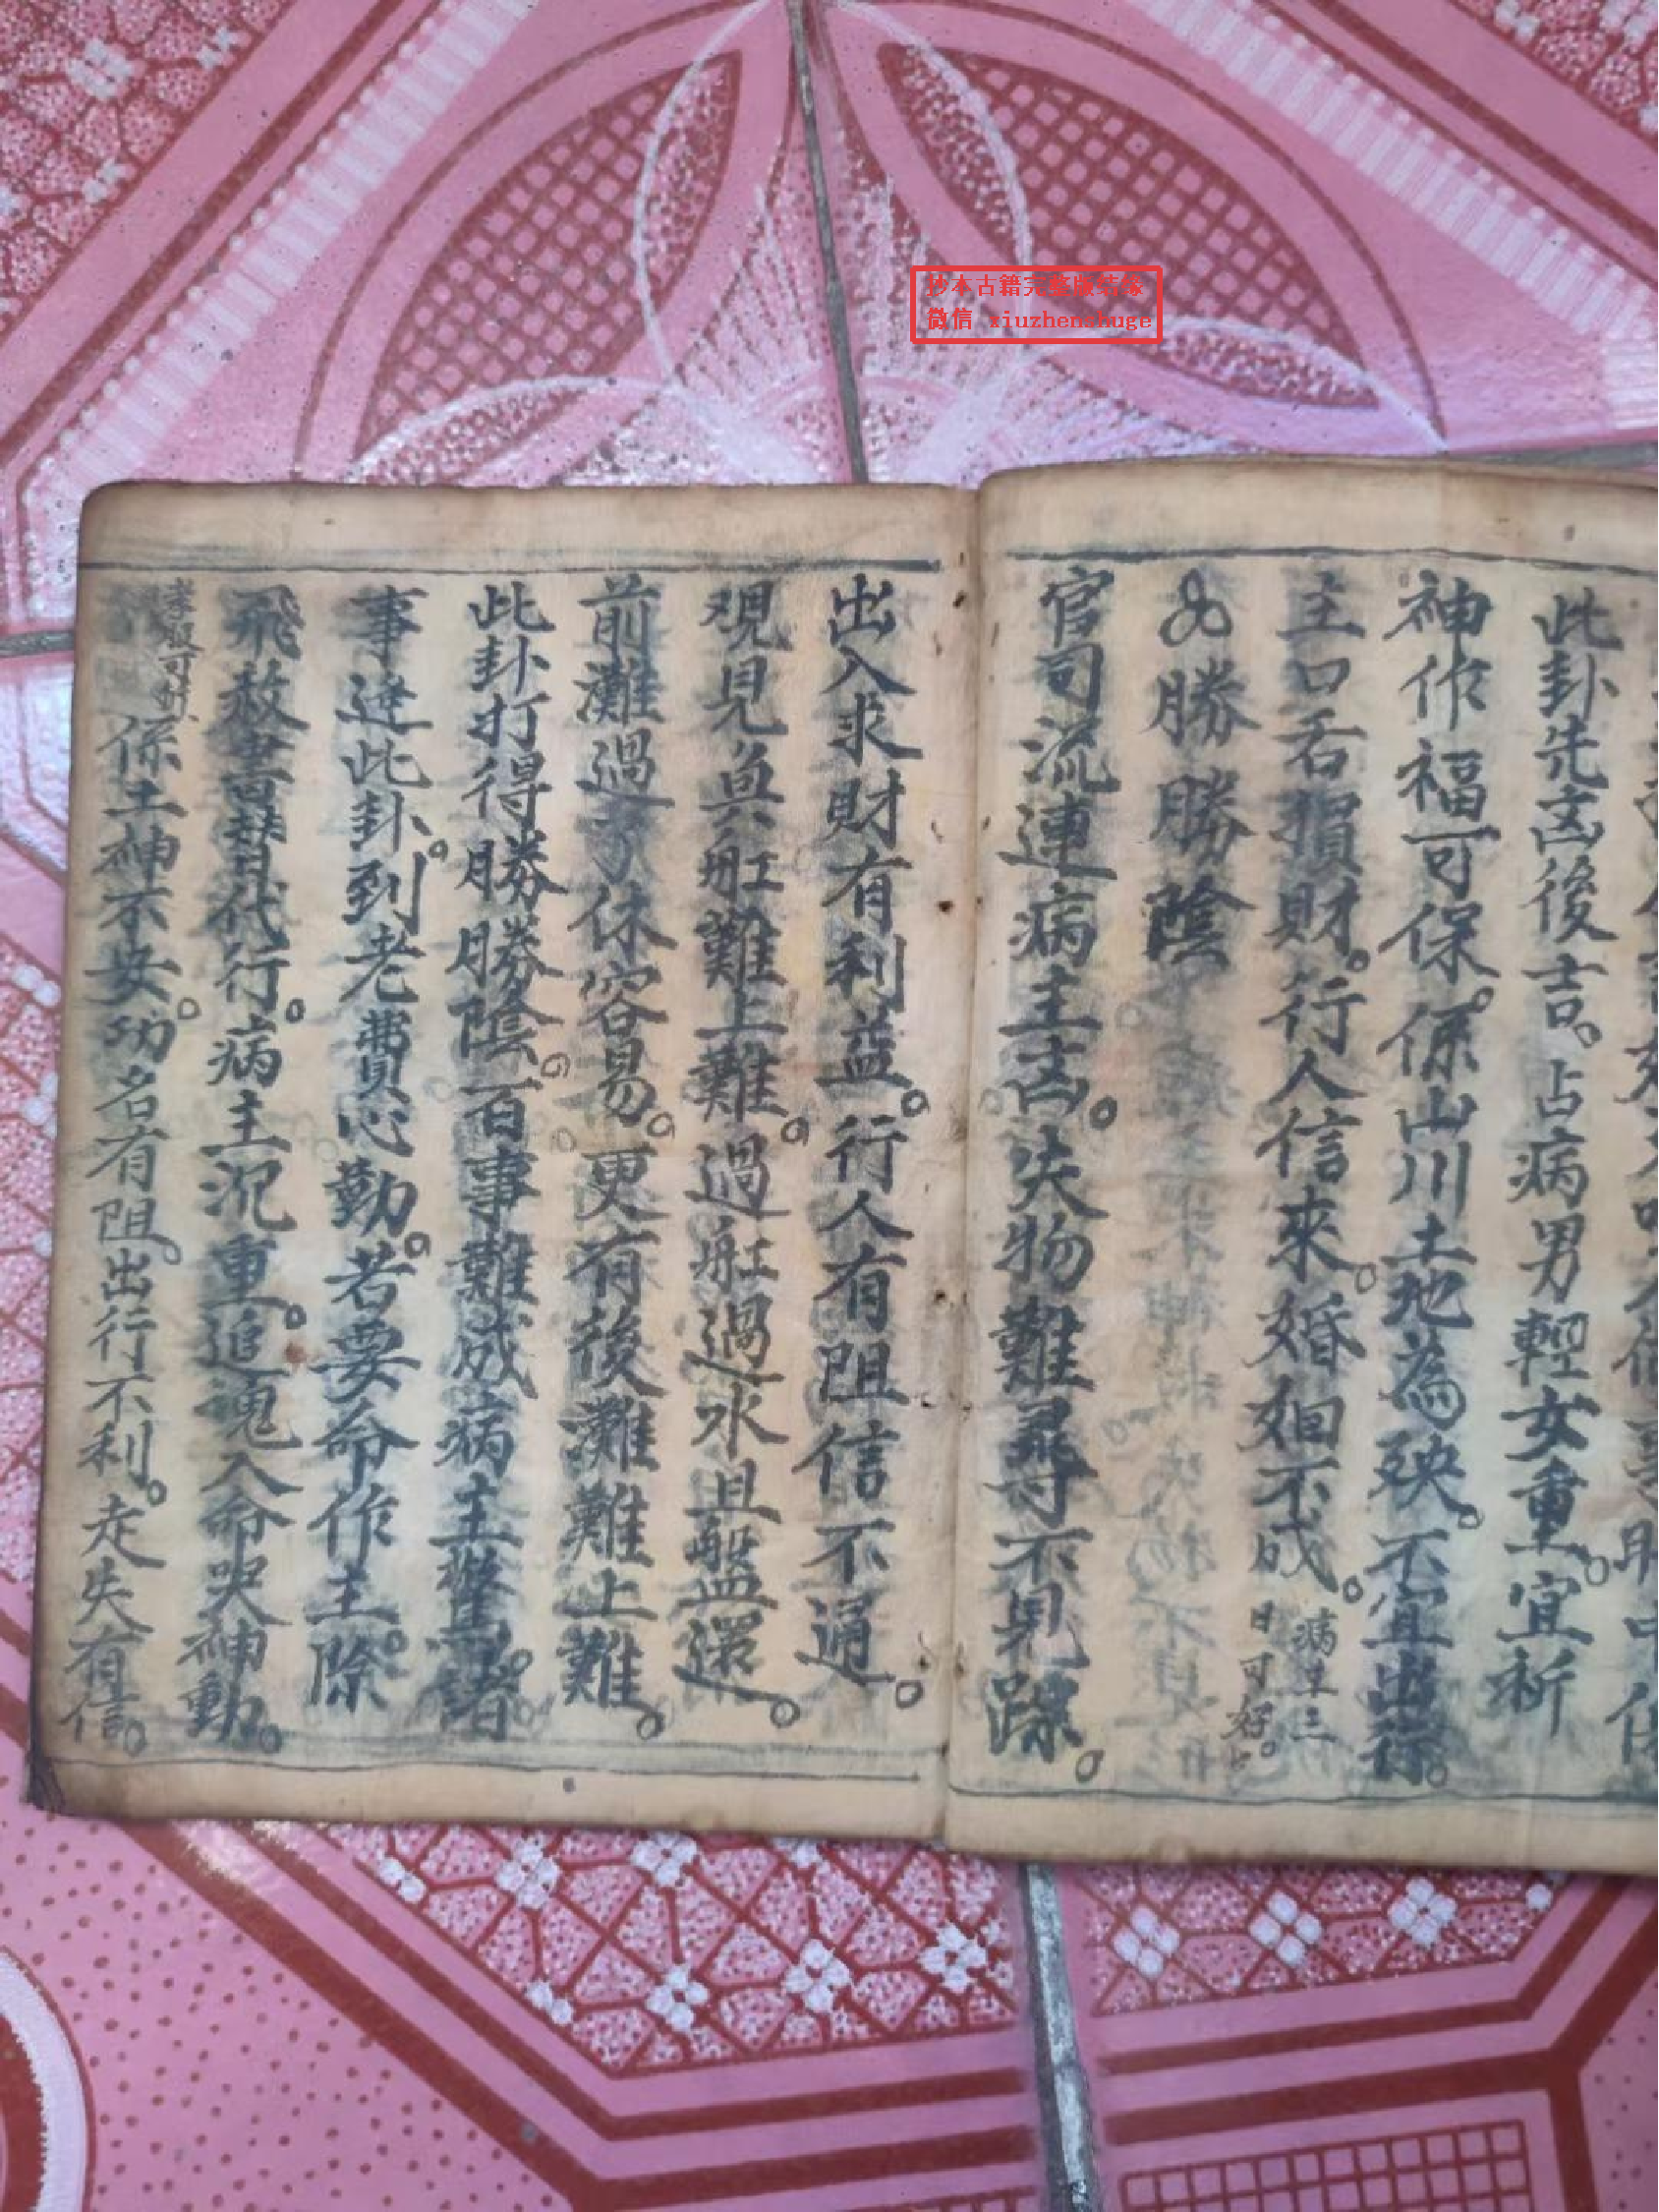 抄本古籍完整版结缘
微信 xiuzhenshuge
此卦先凶後吉。占病男輕女重。宜祈
神作福可保。係山川土地為殃。不宜出行。
主口舌損財。行人信來。婚姻不成。病至三
日可好。
勝勝陰
官司流連病主凶。失物難尋不見踪。
出入求財有利益。行人有阻信不通。
現見魚舡難上難。過舡過水且盤還。
前灘過了休容易。更有後灘難上難。
此卦打得勝勝陰。百事難成病主驚。諸
事逢此卦。到老費心勤。若要命作主。除
飛赦書替代行。病主沉重。追魂入命哭神動。
係土神不安。功名有阻。出行不利。走失有信。